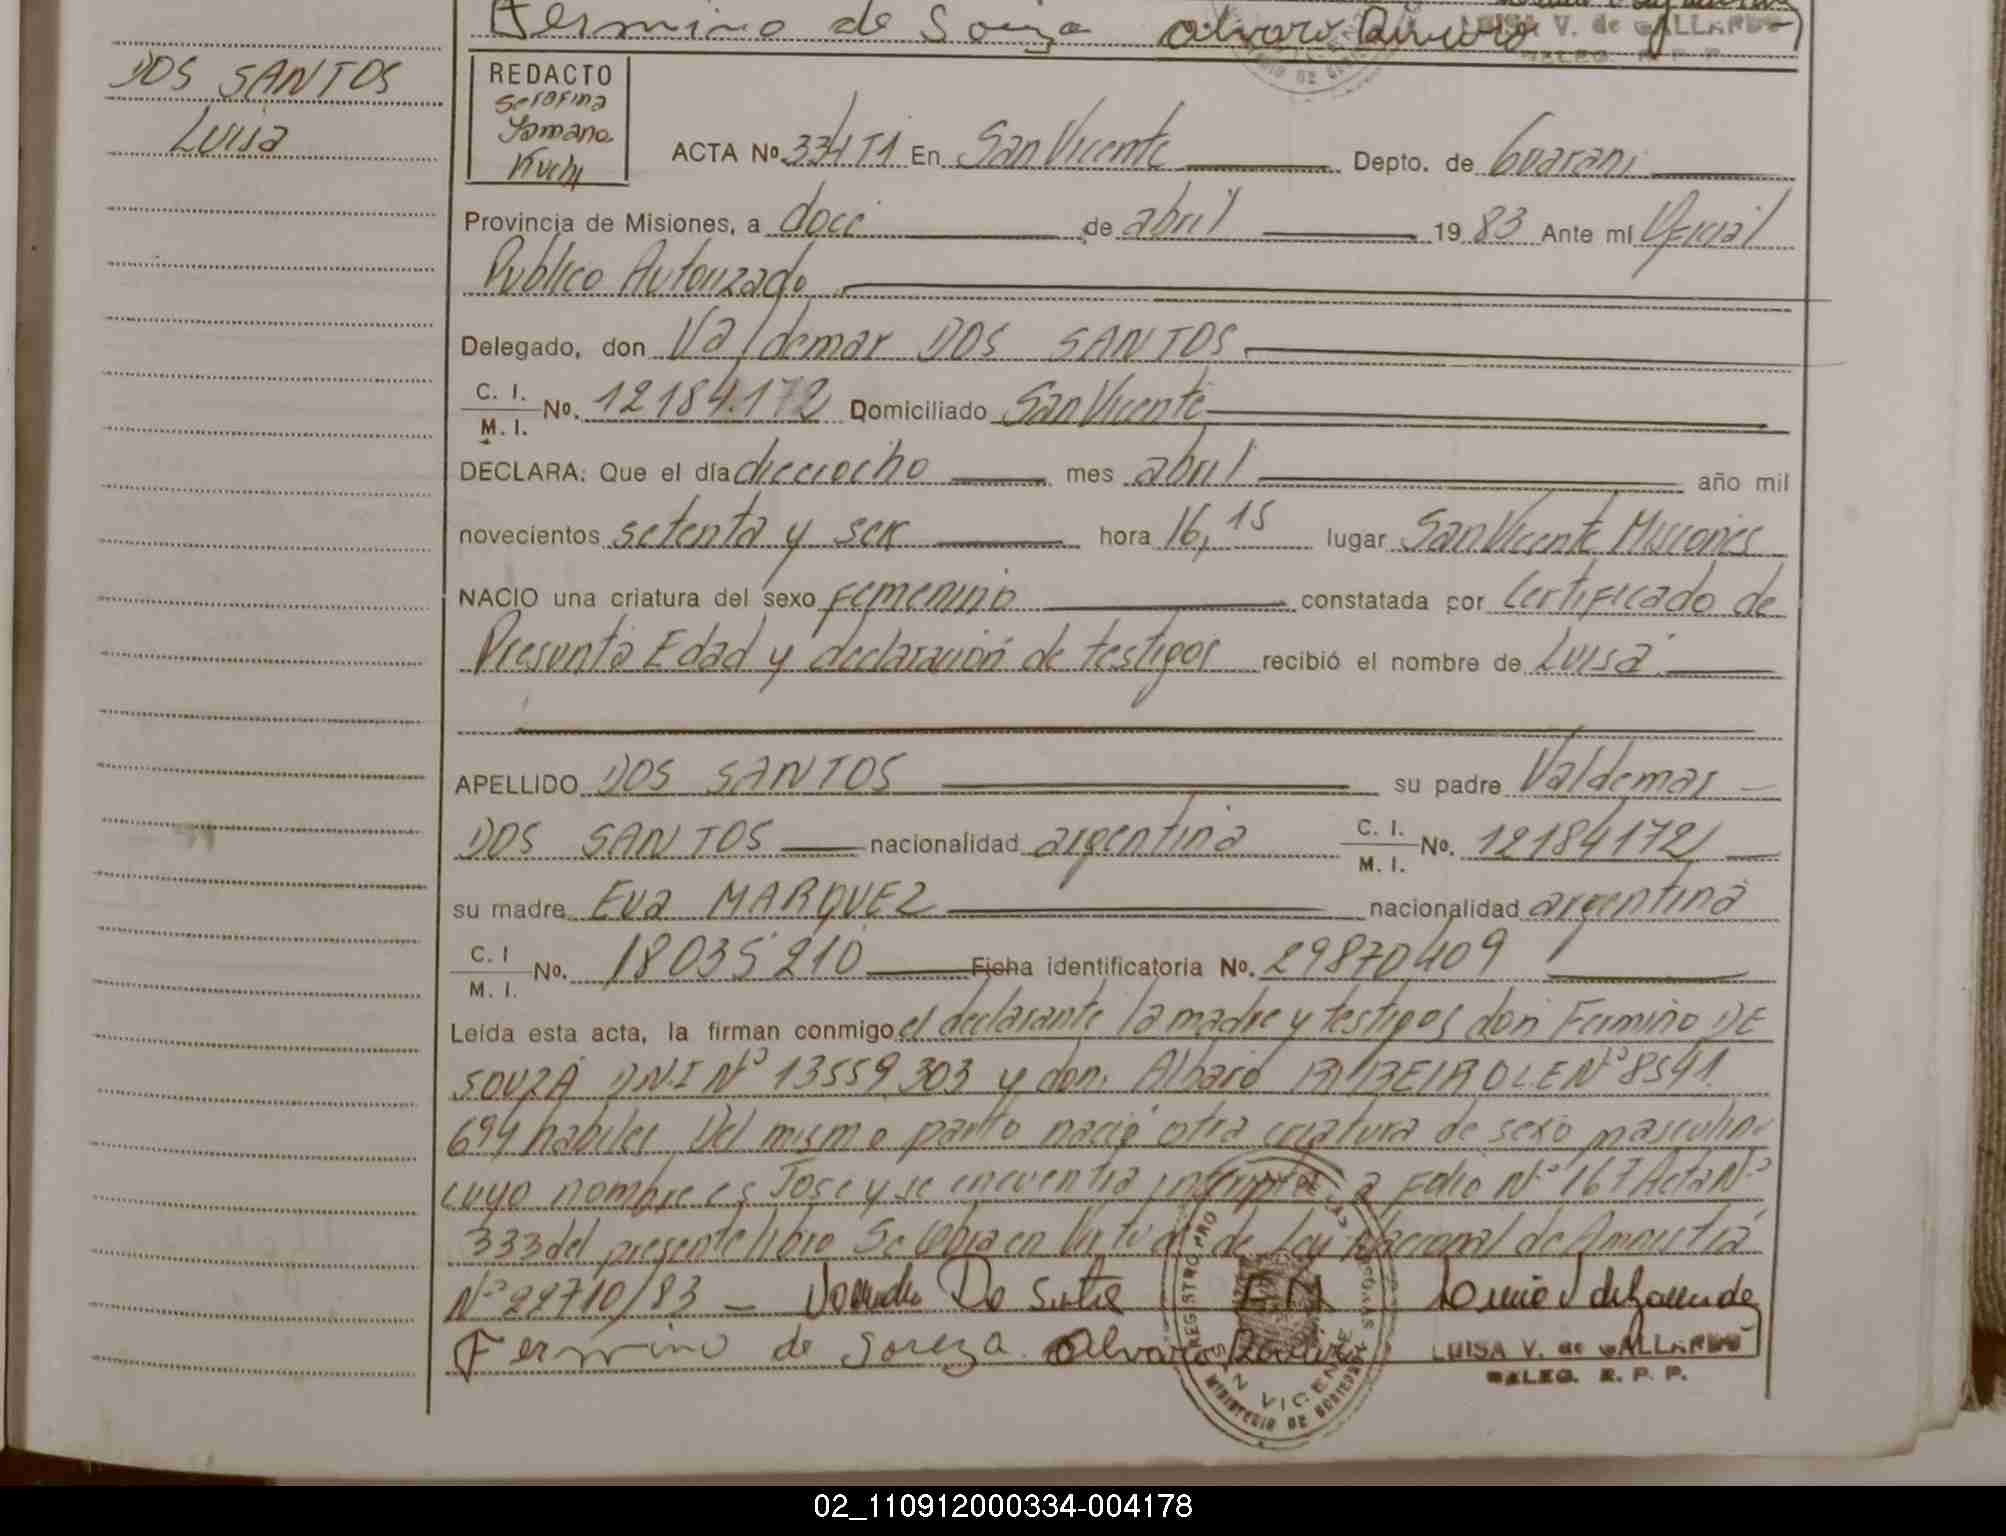 Fermino de Souza Alvaro Ribeiro LUISA V. de GALLARDO
DELEG. R. P. P.
DOS SANTOS
Luisa
REDACTO
Serafina
Kuchi
ACTA Nº 334 T1 En San Vicente Depto. de Guarani
Provincia de Misiones, a doce de abril 1983 Ante mí Oficial
Publico Autorizado
Delegado, don Valdemar DOS SANTOS
C. I.
M. I. Nº. 12184.172 Domiciliado San Vicente
DECLARA: Que el día dieciocho mes abril año mil
novecientos setenta y seis hora 16,15 lugar San Vicente Misiones
NACIO una criatura del sexo femenino constatada por Certificado de
Presunta Edad y declaración de testigos recibió el nombre de Luisa
APELLIDO DOS SANTOS su padre Valdemar
DOS SANTOS nacionalidad argentina C. I.
M. I. Nº. 12184172
su madre Eva MARQUEZ nacionalidad argentina
C. I
M. I. Nº. 18035210 Ficha identificatoria Nº. 29870409
Leída esta acta, la firman conmigo el declarante la madre y testigos don Fermino DE
SOUZA DNI Nº 13559303 y don Albaro RIBEIRO LE Nº 8541
694 habiles Del mismo parto nació otra criatura de sexo masculino
cuyo nombre es Jose y se encuentra inscripta a Folio Nº 167 Acta Nº
333 del presente libro Se labra en Virtud de Ley Nacional de Amnistia
Nº 22710/83
Fermino de Soreza Alvaro Ribeiro LUISA V. de GALLARDO
DELEG. R. P. P.
SAN VICENTE
MINISTERIO DE GOBIERNO
02_110912000334-004178